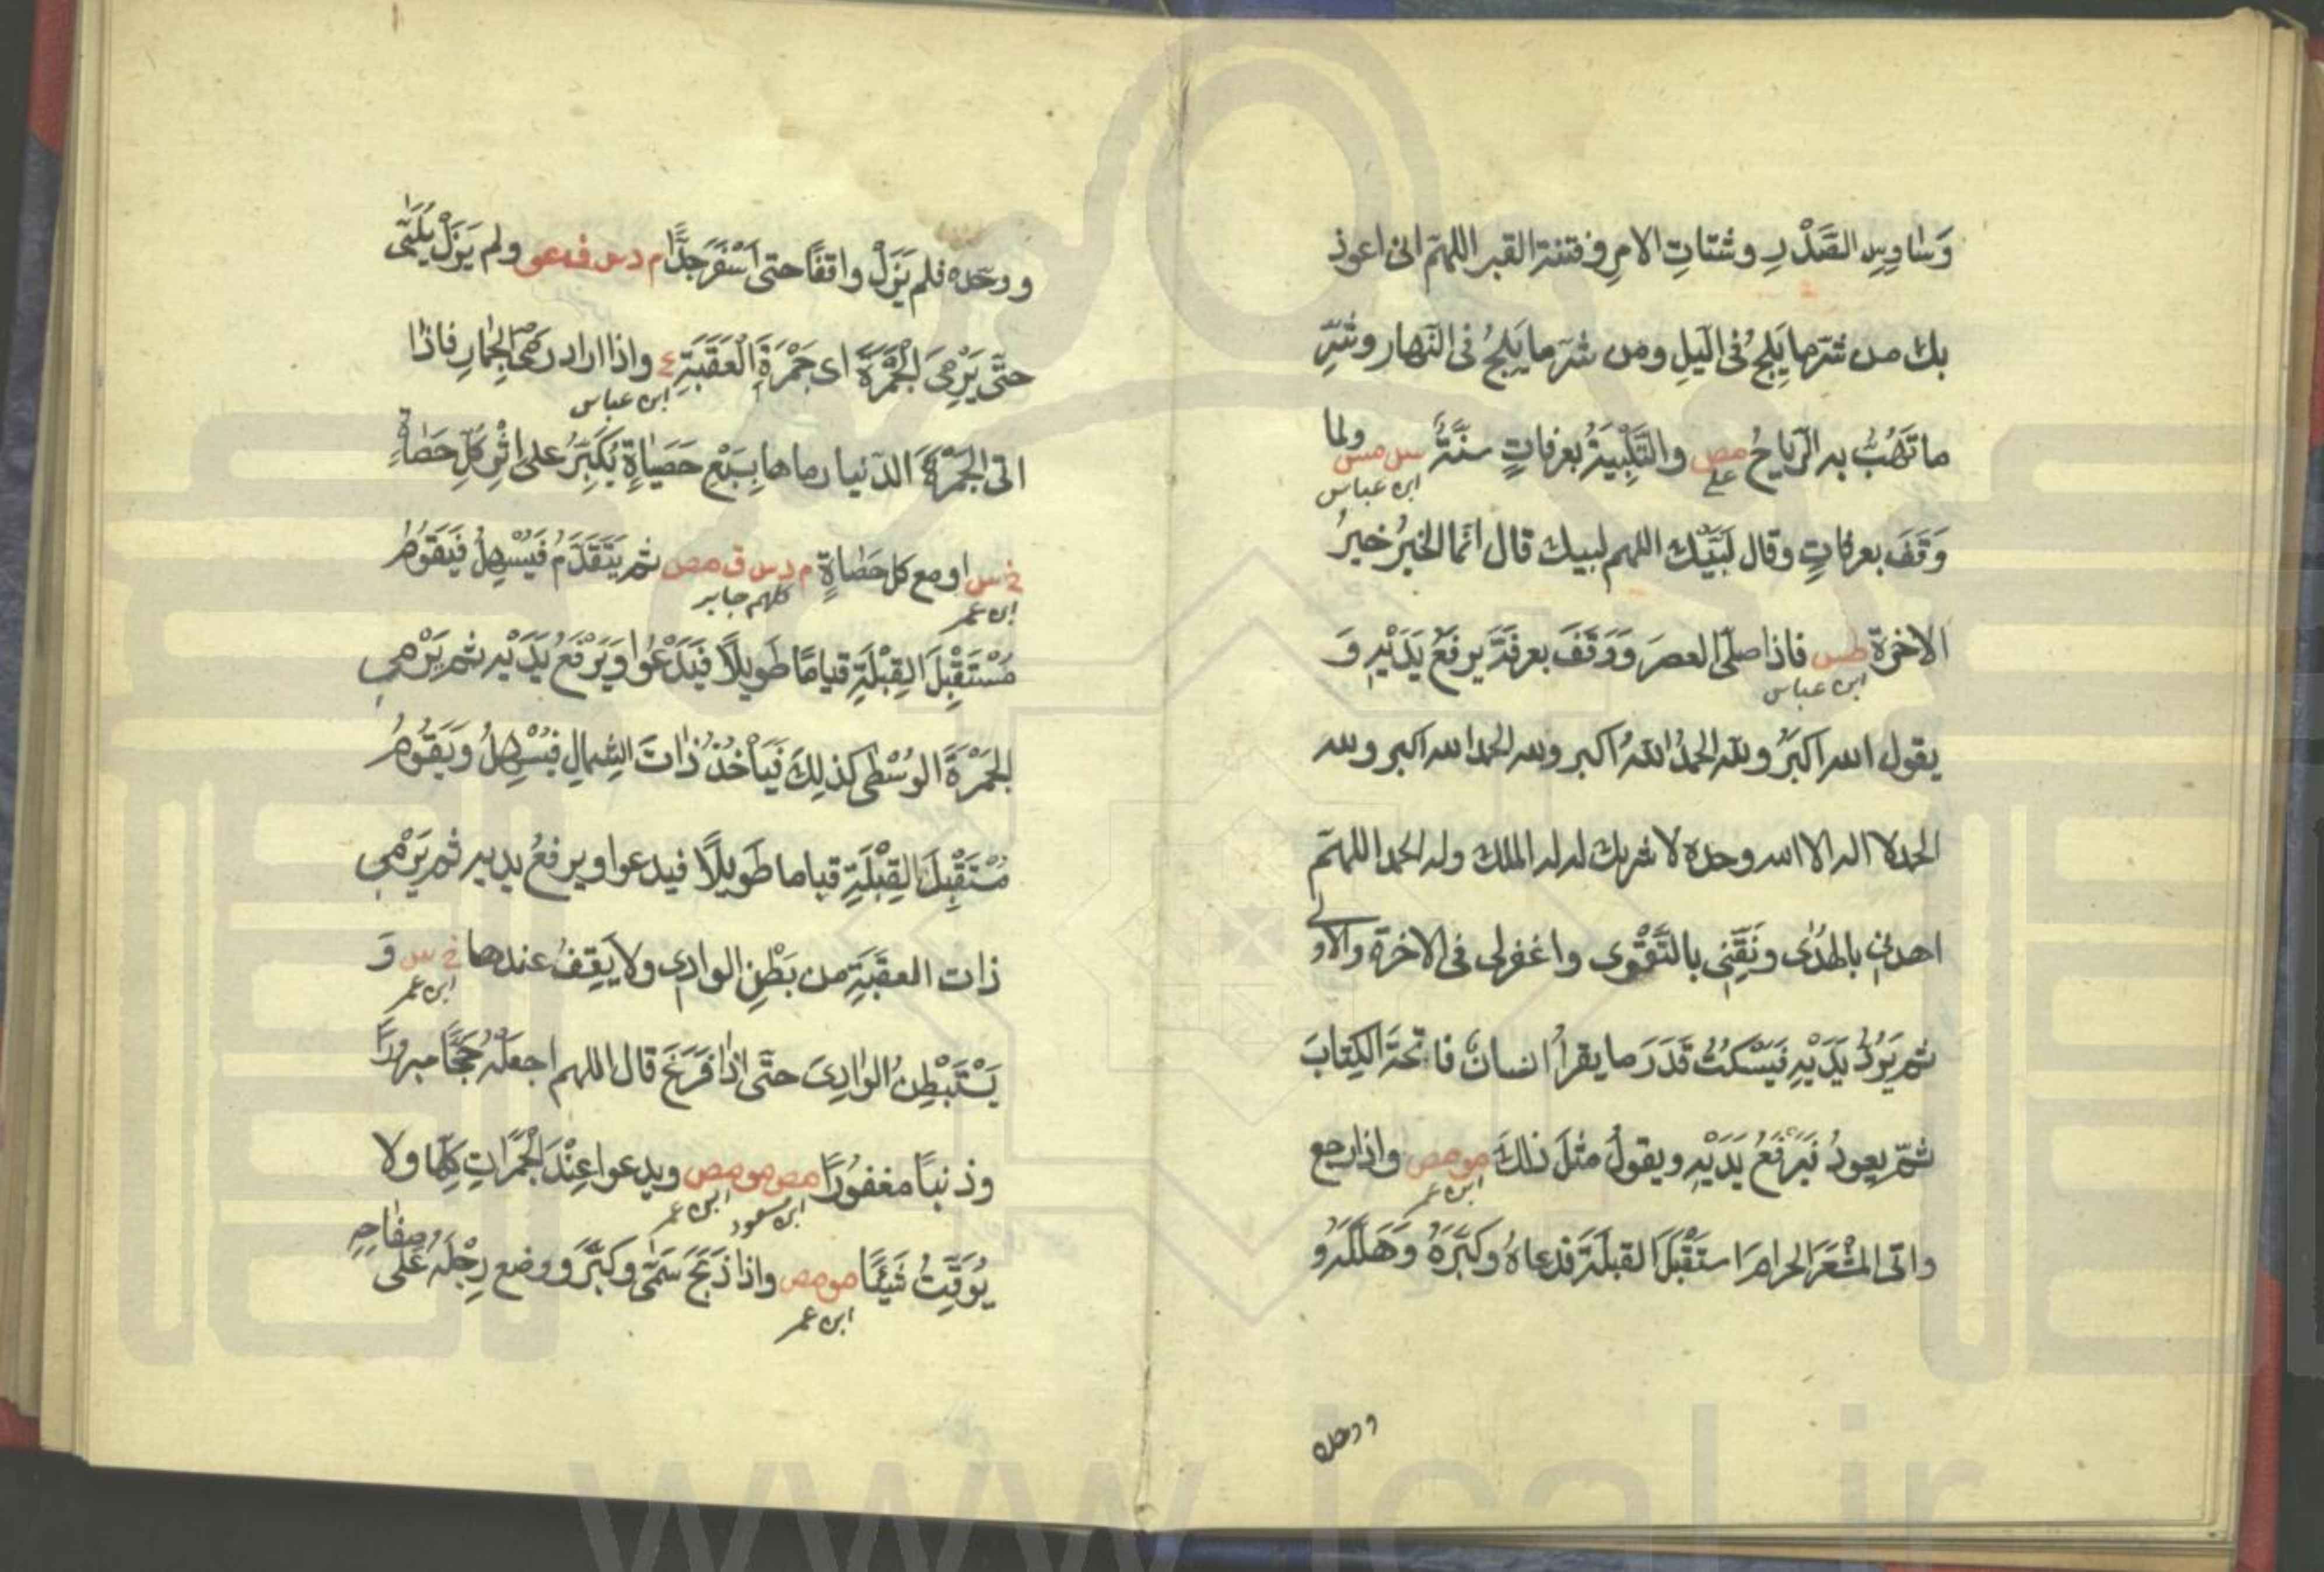 وَسَاوِسِ الصَّدْرِ وشتاتِ الامرِ وفتنة القبر اللهمّ انى اعوذ
بك من شرّ ما يَلِجُ فى الّيلِ ومن شرّ ما يَلجُ فى النّهار وشرِّ
ما تَهُبُّ به الرّياحُ مص والتَّلْبِيَةُ بعرفاتٍ سنَّةٌ س مس ولما
على ابن عباس
وَقَفَ بعرفاتٍ وقال لَبَّيْك اللهم لبيك قال انّما الخيرُ خيرُ
الاخرة طس فاذا صلّى العصرَ وَوَقَفَ بعرفَةَ يرفَعُ يَدَيْهِ وَ
ابن عباس
يقول الله اكبرُ ولله الحمدُ اللهُ اكبر ولله الحمد الله اكبر ولله
الحمد لا اله الا الله وحده لا شريك له له الملك وله الحمد اللهمّ
اهدنى بالهُدٰى ونَقِّنِى بالتَّقْوى واغفرلى فى الاخرة والاولى
ثم يَرُدُّ يَدَيْهِ فَيَسْكُتُ قَدَرَ ما يقرأُ انسانٌ فاتحة الكِتابَ
ثمّ يعودُ فَيَرْفَعُ يَدَيْهِ ويقولُ مثلَ ذلكَ مومص واذا رجع
ابن عمر
واتى المَشْعَرَ الحرامَ استَقْبَلَ القبلَةَ فدعاهُ وكبَّرَهُ وَهَلَّلَهُ و
ووحده
ووحّده فلم يَزَلْ واقفًا حتى اَسْفَرَ جدًّا م د س ق عو ولم يَزَلْ يُلَبِّى
حتَّى يَرْمِىَ الْجَمْرَةَ اى جَمْرَةَ الْعَقَبَةِ ع واذا اراد رَمْىَ الجِمارِ فاذا
ابن عباس
اتى الجَمْرَةَ الدّنيا رماها بِسَبْعِ حَصَياةٍ يُكَبِّرُ على اِثْرِ كُلِّ حَصَاةٍ
خ س او مع كل حَصَاةٍ م د س ق مص ثم يَتَقَدَّمُ فَيُسْهِلُ فَيَقُومُ
ابن عمر كلهم جابر
مُسْتَقْبِلَ القِبْلَةِ قيامًا طَوِيلًا فَيَدْعُوا وَيَرْفَعُ يَدَيْهِ ثم يَرْمِى
الجَمْرَةَ الوُسْطى كذلِكَ فَيَأْخُذُ ذَاتَ الشِمالِ فيُسْهِلُ ويَقُومُ
مُسْتَقْبِلَ القِبْلَةِ قياما طَوِيلًا فيدعوا ويرفعُ يديه ثم يَرْمِى
ذات العقَبَةِ من بَطْنِ الوادِى ولا يَقِفُ عندها خ س وَ
ابن عمر
يَسْتَبْطِنُ الوَادِىَ حتّى اِذَا فَرَغَ قال اللهم اجعله حَجًّا مبرورًا
وذنبًا مغفورًا مص مومص ويدعوا عِنْدَ الجَمَرَاتِ كلِّها ولا
ابن مسعود ابن عمر
يُوَقِّتُ شَيْئًا مومص واذا ذَبَحَ سَمّٰى وكَبَّرَ ووضع رِجْلَهُ عَلى صفاحِهِ
ابن عمر